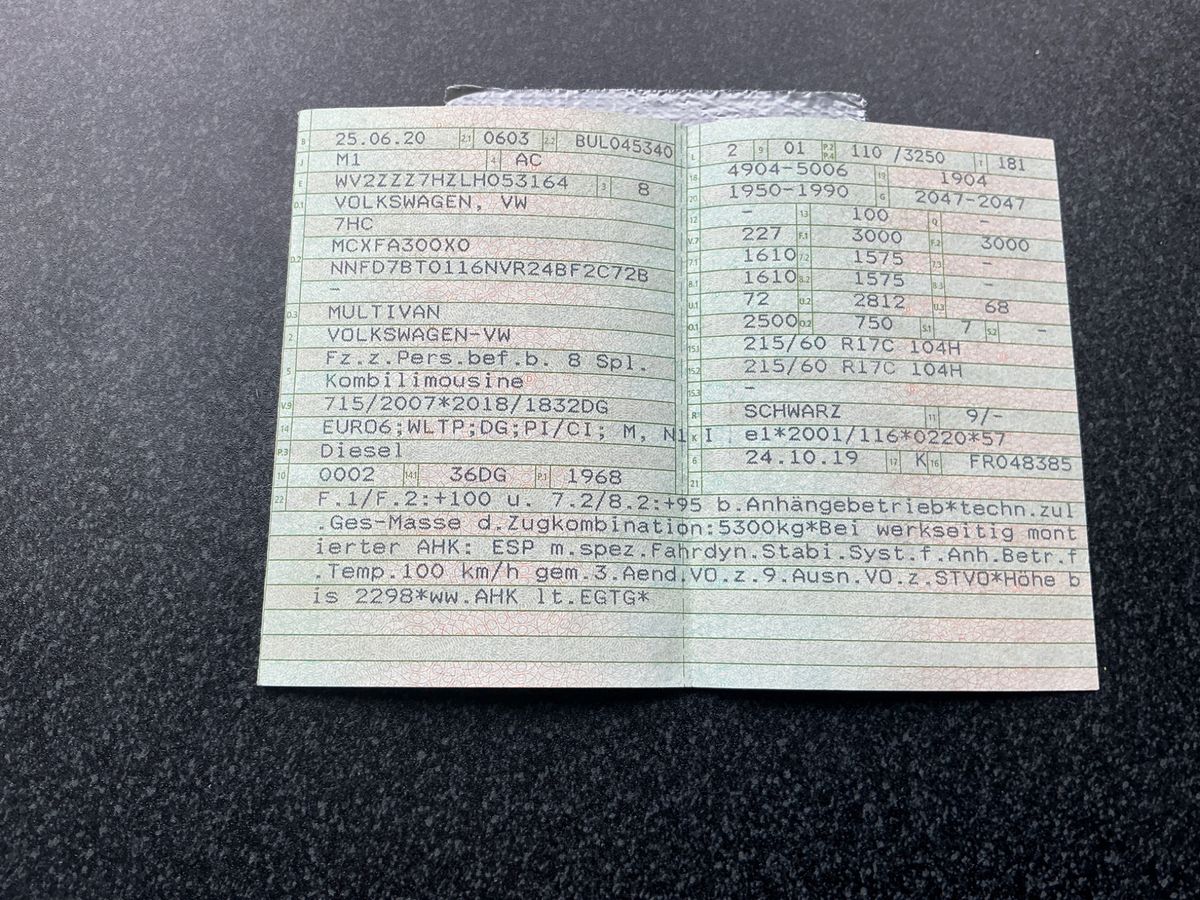 B 25.06.20 2.1 0603 2.2 BUL045340
J M1 4 AC
E WV2ZZZ7HZLH053164 3 8
D.1 VOLKSWAGEN, VW
7HC
D.2 MCXFA300X0
NNFD7BT0116NVR24BF2C72B
–
D.3 MULTIVAN
2 VOLKSWAGEN-VW
5 Fz.z.Pers.bef.b. 8 Spl.
Kombilimousine
V.9 715/2007*2018/1832DG
14 EURO6;WLTP;DG;PI/CI; M, N1 I
P.3 Diesel
10 0002 14.1 36DG P.1 1968
L 2 9 01 P.2 P.4 110 /3250 T 181
18 4904-5006 19 1904
20 1950-1990 G 2047-2047
12 – 13 100 Q –
V.7 227 F.1 3000 F.2 3000
7.1 1610 7.2 1575 7.3 –
8.1 1610 8.2 1575 8.3 –
U.1 72 U.2 2812 U.3 68
O.1 2500 O.2 750 S.1 7 S.2 –
15.1 215/60 R17C 104H
15.2 215/60 R17C 104H
15.3 –
R SCHWARZ 11 9/–
K e1*2001/116*0220*57
6 24.10.19 17 K 16 FR048385
21
22 F.1/F.2:+100 u. 7.2/8.2:+95 b.Anhängebetrieb*techn.zul
.Ges-Masse d.Zugkombination:5300kg*Bei werkseitig mont
ierter AHK: ESP m.spez.Fahrdyn.Stabi.Syst.f.Anh.Betr.f
.Temp.100 km/h gem.3.Aend.VO.z.9.Ausn.VO.z.STVO*Höhe b
is 2298*ww.AHK lt.EGTG*